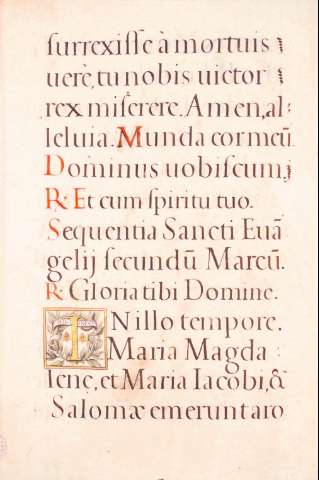 surrexisse à mortuis
uerè, tu nobis uictor
rex miserere. Amen, al:
leluia. Munda cor meū.
Dominus uobiscum.
R. Et cum spiritu tuo.
Sequentia Sancti Euā
gelij secundū Marcū.
R. Gloria tibi Domine.
IN illo tempore.
Maria Magda
lene, et Maria Iacobi, &
Salomæ emerunt aro